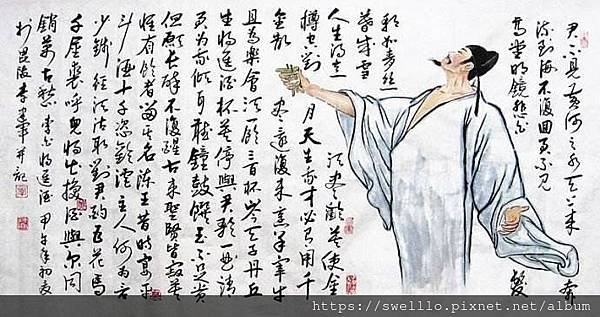 君不見黃河之水天上來奔
流到海不復回君不見
高堂明鏡悲白髮
朝如青絲
暮成雪
人生得意須盡歡莫使金
樽空對月天生我材必有用千
金散盡還復來烹羊宰牛
且為樂會須一飲三百杯岑夫子丹丘
生將進酒杯莫停與君歌一曲請
君為我傾耳聽鐘鼓饌玉不足貴
但願長醉不復醒古來聖賢皆寂寞
惟有飲者留其名陳王昔時宴平
斗酒十千恣歡謔主人何為言
少錢徑須沽取對君酌五花馬
千金裘呼兒將出換酒與爾同
銷萬古愁 李白將進酒 甲午年初夏
李 并記
https://swelllo.pixnet.net/album